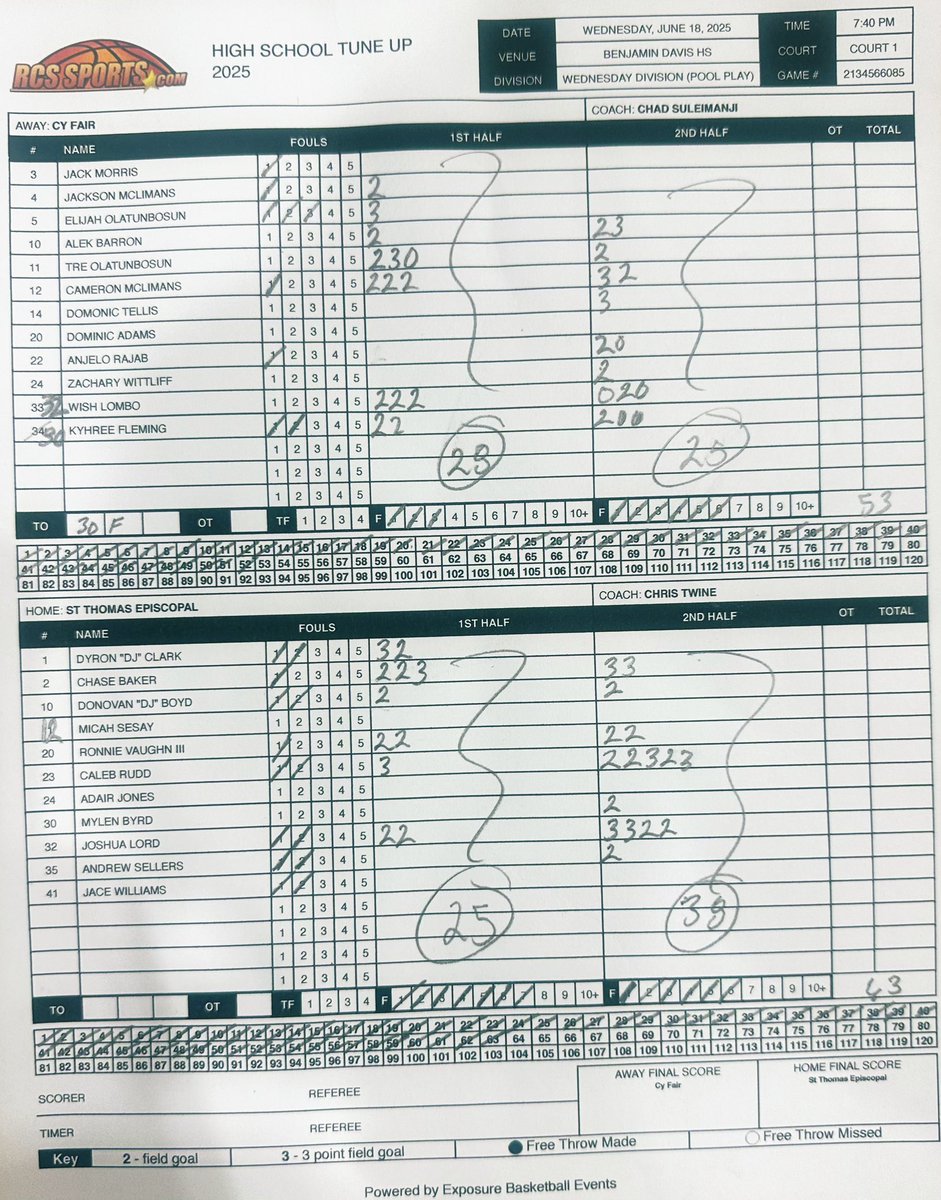 RCS SPORTS.COM
HIGH SCHOOL TUNE UP
2025
DATE WEDNESDAY, JUNE 18, 2025 TIME 7:40 PM
VENUE BENJAMIN DAVIS HS COURT COURT 1
DIVISION WEDNESDAY DIVISION (POOL PLAY) GAME # 2134566085
AWAY: CY FAIR COACH: CHAD SULEIMANJI
# NAME FOULS 1ST HALF 2ND HALF OT TOTAL
3 JACK MORRIS 1 2 3 4 5
4 JACKSON MCLIMANS 1 2 3 4 5 2
5 ELIJAH OLATUNBOSUN 1 2 3 4 5 3
10 ALEK BARRON 1 2 3 4 5 2 23
11 TRE OLATUNBOSUN 1 2 3 4 5 230 2
12 CAMERON MCLIMANS 1 2 3 4 5 222 32
14 DOMONIC TELLIS 1 2 3 4 5 3
20 DOMINIC ADAMS 1 2 3 4 5
22 ANJELO RAJAB 1 2 3 4 5 20
24 ZACHARY WITTLIFF 1 2 3 4 5 2
33 32 WISH LOMBO 1 2 3 4 5 222 020
34 30 KYHREE FLEMING 1 2 3 4 5 22 200
1 2 3 4 5 28 25
1 2 3 4 5
1 2 3 4 5
TO 30 F OT TF 1 2 3 4 F 1 2 3 4 5 6 7 8 9 10+ F 1 2 3 4 5 6 7 8 9 10+ 53
1 2 3 4 5 6 7 8 9 10 11 12 13 14 15 16 17 18 19 20 21 22 23 24 25 26 27 28 29 30 31 32 33 34 35 36 37 38 39 40
41 42 43 44 45 46 47 48 49 50 51 52 53 54 55 56 57 58 59 60 61 62 63 64 65 66 67 68 69 70 71 72 73 74 75 76 77 78 79 80
81 82 83 84 85 86 87 88 89 90 91 92 93 94 95 96 97 98 99 100 101 102 103 104 105 106 107 108 109 110 111 112 113 114 115 116 117 118 119 120
HOME: ST THOMAS EPISCOPAL COACH: CHRIS TWINE
# NAME FOULS 1ST HALF 2ND HALF OT TOTAL
1 DYRON "DJ" CLARK 1 2 3 4 5 32
2 CHASE BAKER 1 2 3 4 5 223 33
10 DONOVAN "DJ" BOYD 1 2 3 4 5 2 2
12 MICAH SESAY 1 2 3 4 5
20 RONNIE VAUGHN III 1 2 3 4 5 22 22
23 CALEB RUDD 1 2 3 4 5 3 22323
24 ADAIR JONES 1 2 3 4 5
30 MYLEN BYRD 1 2 3 4 5 2
32 JOSHUA LORD 1 2 3 4 5 22 3322
35 ANDREW SELLERS 1 2 3 4 5 2
41 JACE WILLIAMS 1 2 3 4 5
1 2 3 4 5 25 38
1 2 3 4 5
1 2 3 4 5
1 2 3 4 5
TO OT TF 1 2 3 4 F 1 2 3 4 5 6 7 8 9 10+ F 1 2 3 4 5 6 7 8 9 10+ 63
1 2 3 4 5 6 7 8 9 10 11 12 13 14 15 16 17 18 19 20 21 22 23 24 25 26 27 28 29 30 31 32 33 34 35 36 37 38 39 40
41 42 43 44 45 46 47 48 49 50 51 52 53 54 55 56 57 58 59 60 61 62 63 64 65 66 67 68 69 70 71 72 73 74 75 76 77 78 79 80
81 82 83 84 85 86 87 88 89 90 91 92 93 94 95 96 97 98 99 100 101 102 103 104 105 106 107 108 109 110 111 112 113 114 115 116 117 118 119 120
SCORER REFEREE AWAY FINAL SCORE HOME FINAL SCORE
Cy Fair St Thomas Episcopal
TIMER REFEREE
Key 2 - field goal 3 - 3 point field goal Free Throw Made Free Throw Missed
Powered by Exposure Basketball Events